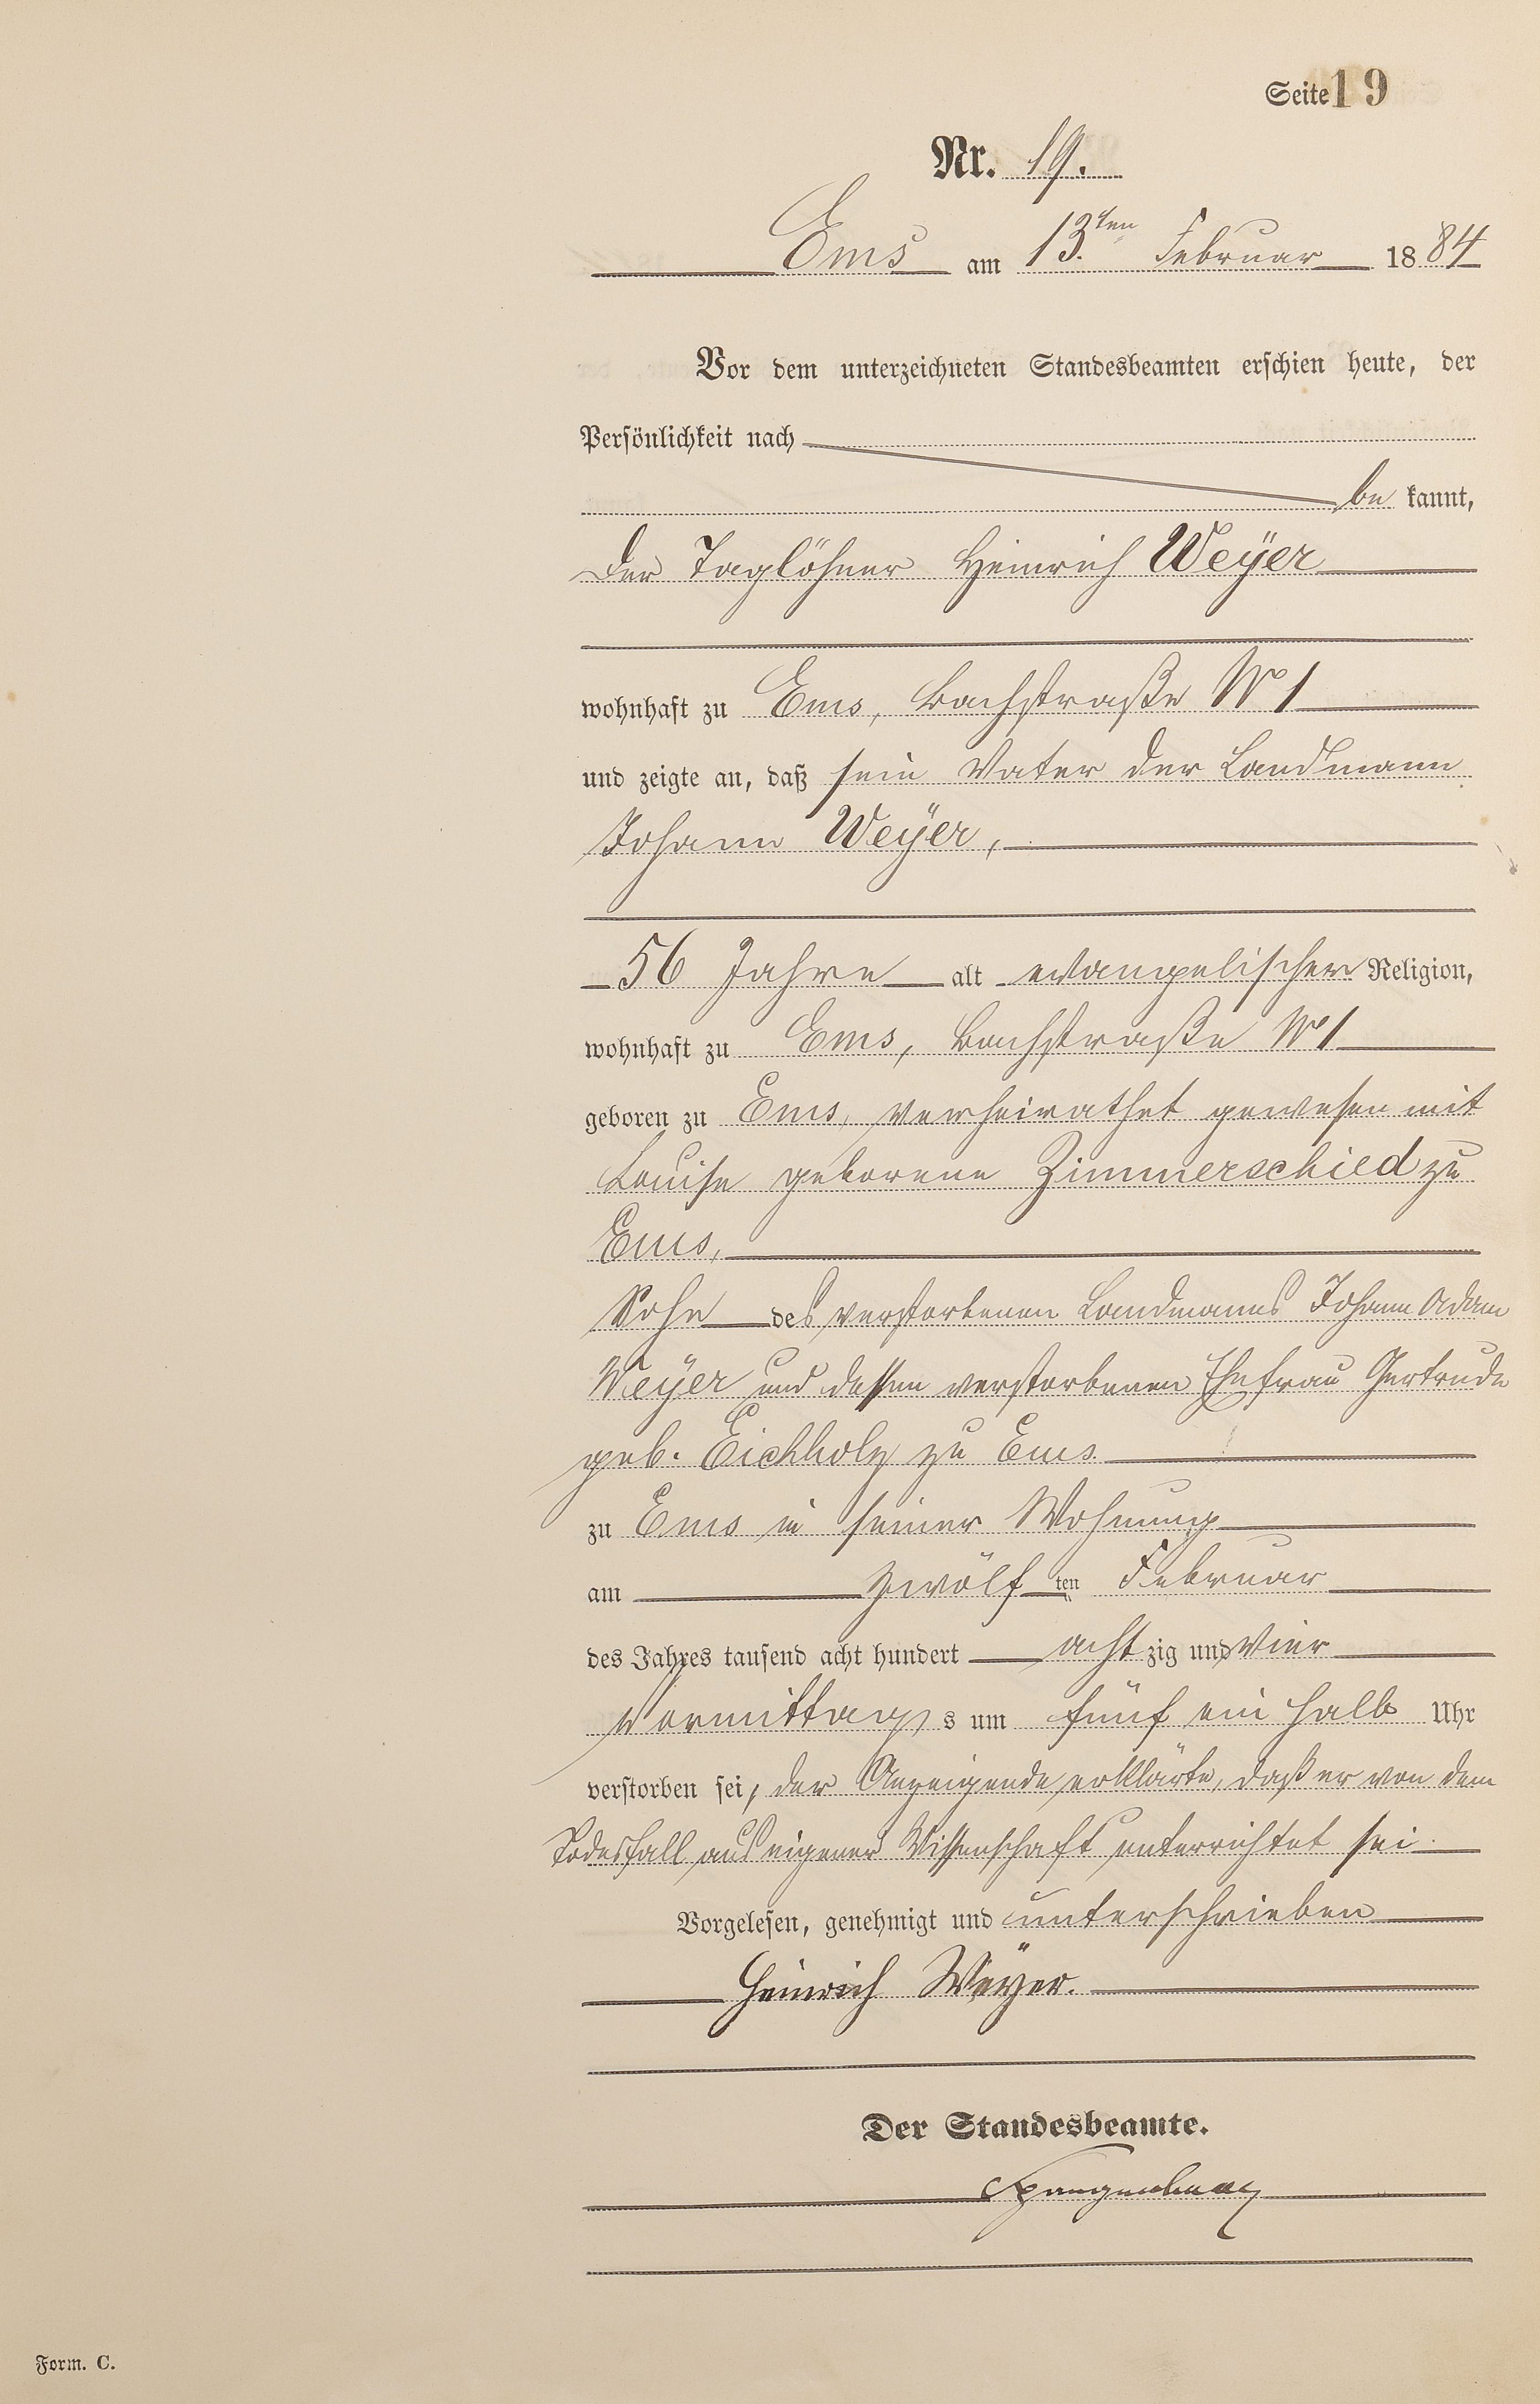 Seite 19
Nr. 19.
Ems am 13.ten Februar 1884
Vor dem unterzeichneten Standesbeamten erschien heute, der
Persönlichkeit nach
be kannt,
der Taglöhner Heinrich Weÿer
wohnhaft zu Ems, Bachstraße No 1
und zeigte an, daß sein Vater der Landmann
Johann Weÿer,
56 Jahre alt evangelischer Religion,
wohnhaft zu Ems, Bachstraße No 1
geboren zu Ems, verheirathet gewesen mit
Louise geborene Zimmerschied zu
Ems,
Sohn des verstorbenen Landmanns Johann Adam
Weÿer und dessen verstorbenen Ehefrau Gertrude
geb. Eichholz zu Ems.
zu Ems in seiner Wohnung
am zwölf ten Februar
des Jahres tausend acht hundert acht zig und vier
Vormittags um fünf ein halb Uhr
verstorben sei, der Anzeigende erklärte, daß er von dem
Todesfall aus eigener Wissenschaft unterrichtet sei.
Vorgelesen, genehmigt und unterschrieben
Heinrich Weÿer.
Der Standesbeamte.
Spangenberg
Form. C.